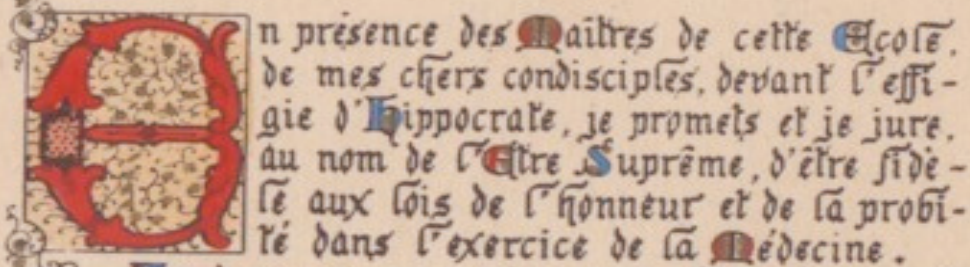 En présence des Maîtres de cette Ecole,
de mes chers condisciples, devant l'effi-
gie d'Hippocrate, je promets et je jure,
au nom de l'Etre Suprême, d'être fidè-
le aux lois de l'honneur et de la probi-
té dans l'exercice de la Médecine.